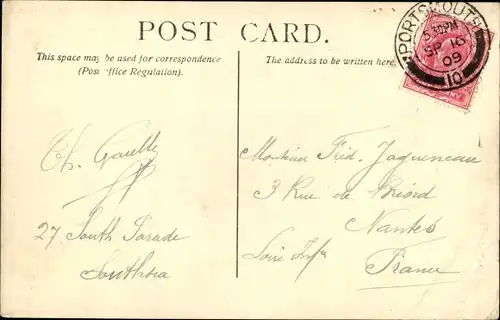 POST CARD.
This space may be used for correspondence
(Post Office Regulation).
The address to be written here.
PORTSMOUTH
5.30PM
SP 16
09
10
Th.
27 South Parade
Southsea
Monsieur Fréd. Jaqueneau
3 Rue de
Nantes
Loire Infre
France